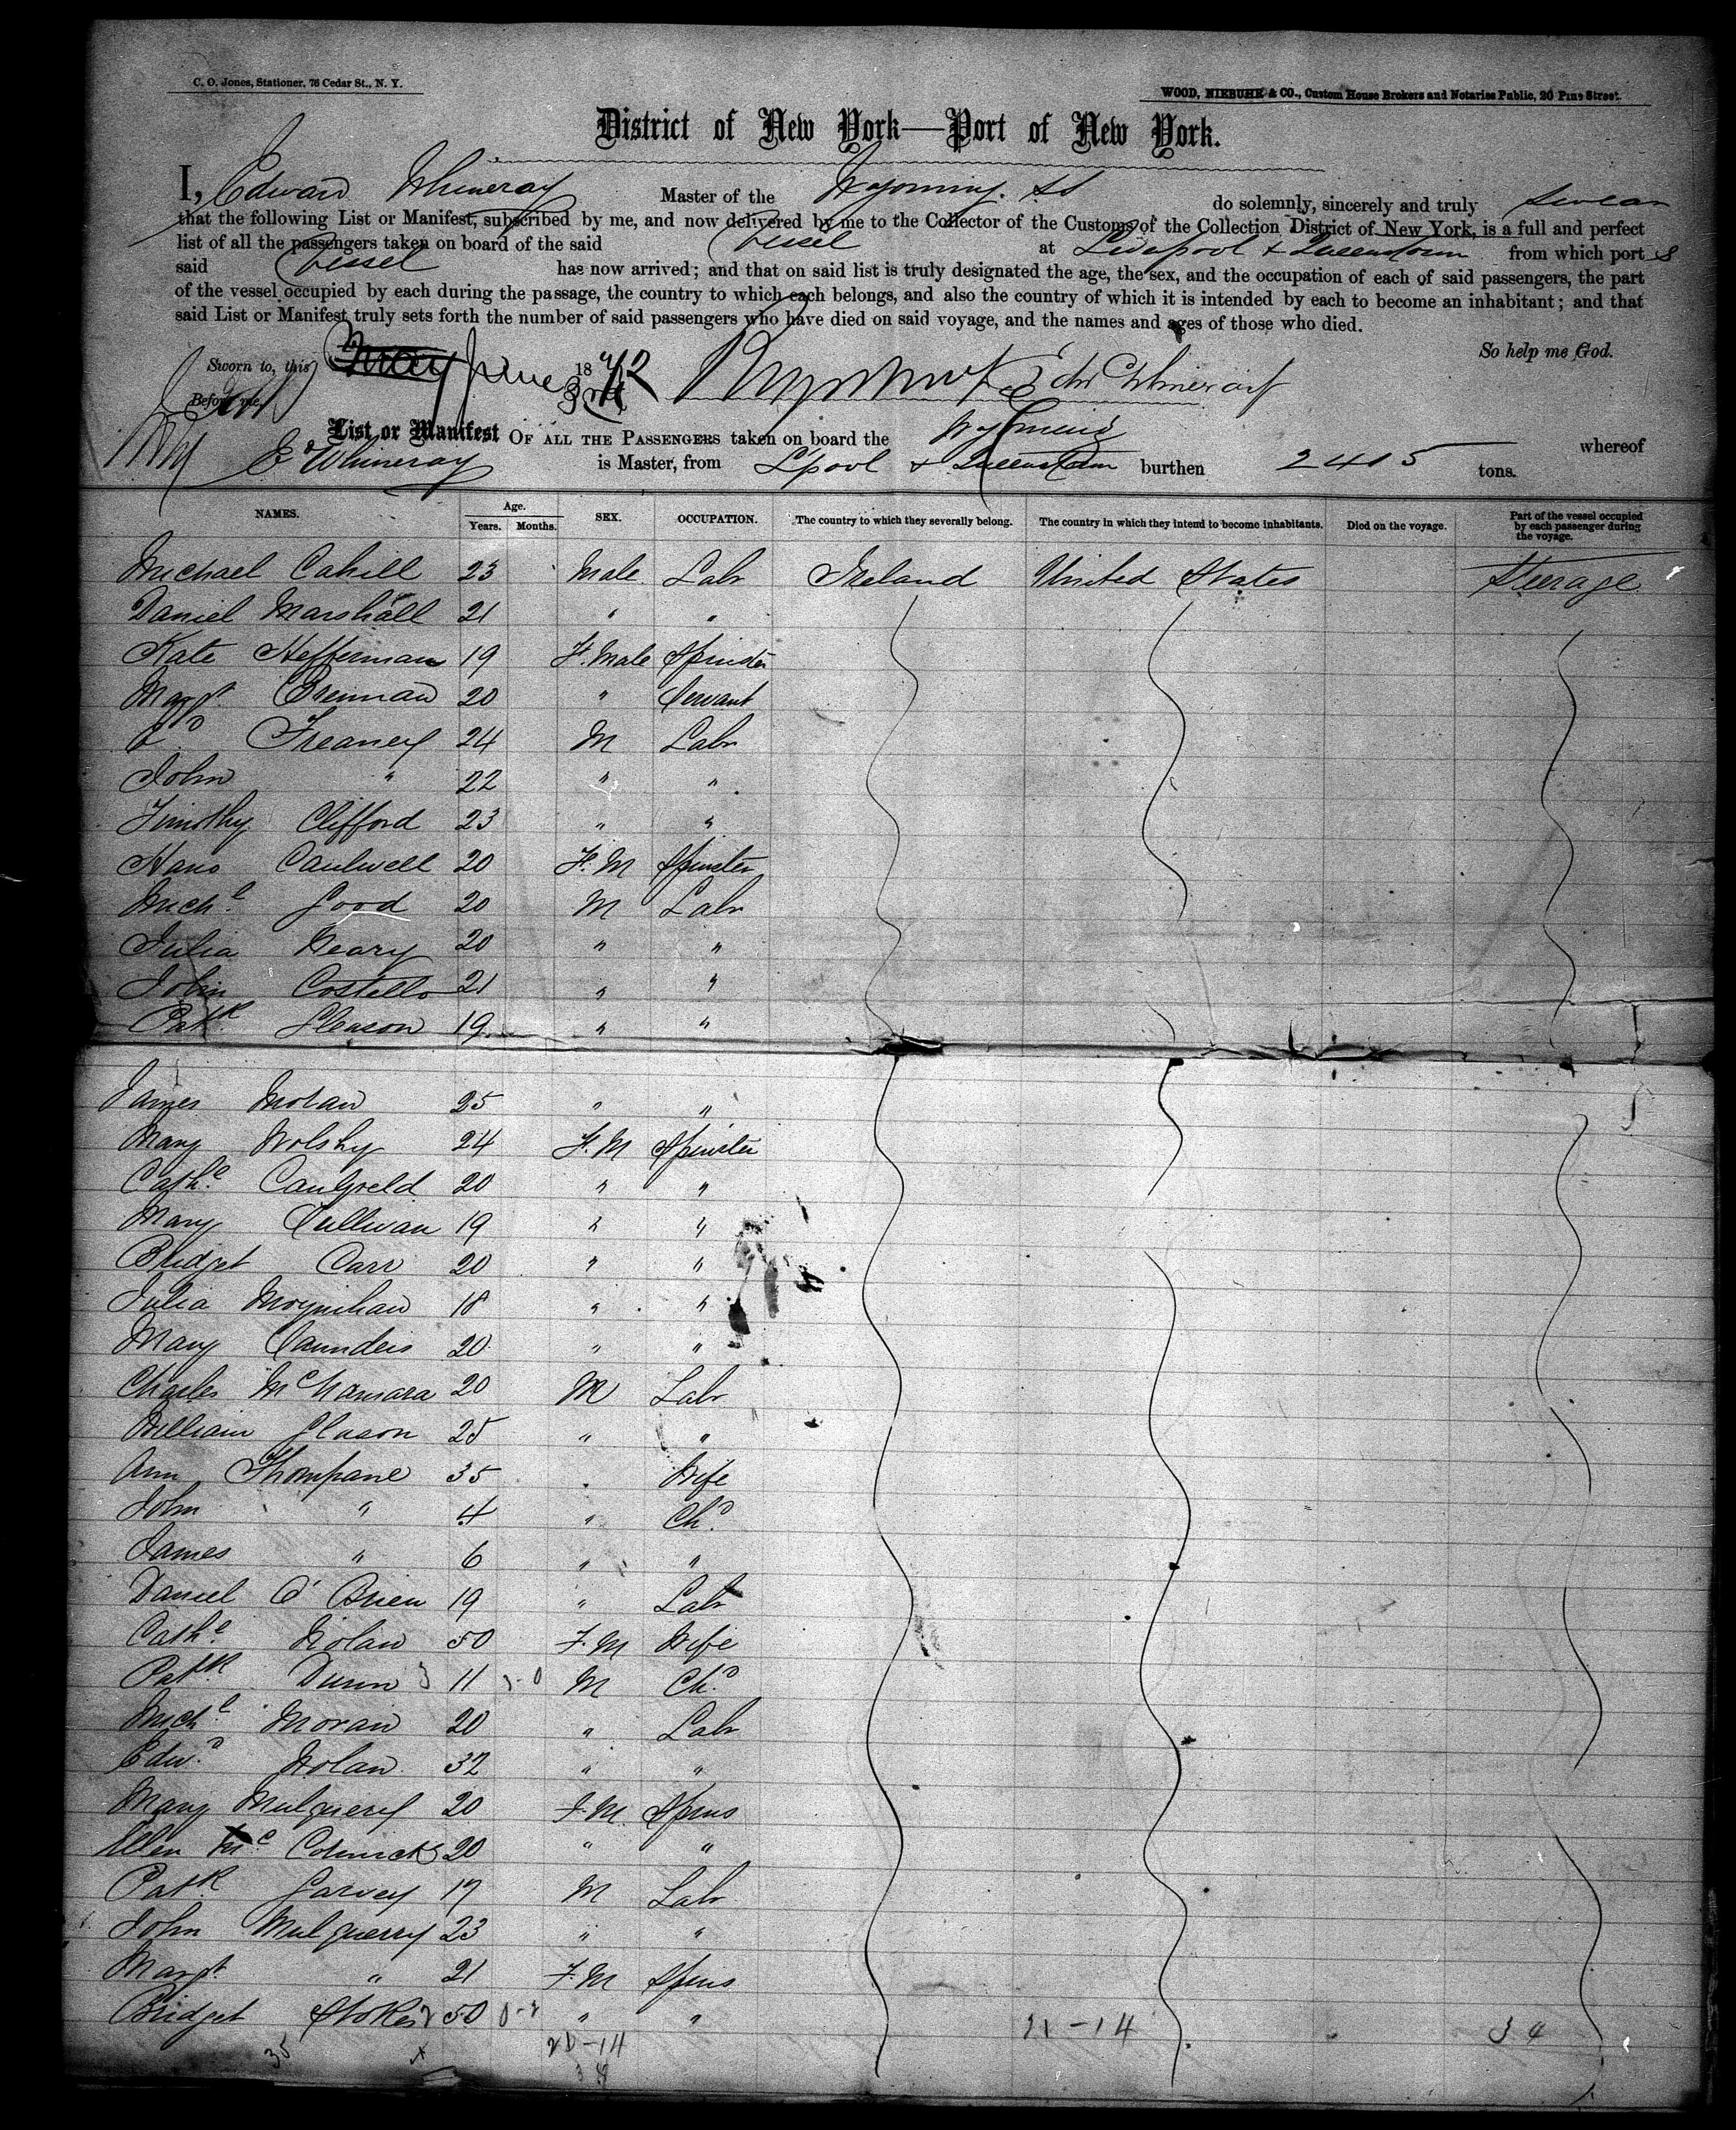 C. O. Jones, Stationer, 76 Cedar St., N. Y.
WOOD, NIEBUHR & CO., Custom House Brokers and Notaries Public, 20 Pine Street.
District of New York—Port of New York.
I, Edward Whineray Master of the Wyoming. SS do solemnly, sincerely and truly swear
that the following List or Manifest, subscribed by me, and now delivered by me to the Collector of the Customs of the Collection District of New York, is a full and perfect
list of all the passengers taken on board of the said Vessel at Liverpool & Queenstown from which port s
said Vessel has now arrived; and that on said list is truly designated the age, the sex, and the occupation of each of said passengers, the part
of the vessel occupied by each during the passage, the country to which each belongs, and also the country of which it is intended by each to become an inhabitant; and that
said List or Manifest truly sets forth the number of said passengers who have died on said voyage, and the names and ages of those who died.
So help me God.
Sworn to, this June 3rd 1872 Edw Whineray
Before me,
List or Manifest OF ALL THE PASSENGERS taken on board the Wyoming whereof
E Whineray is Master, from L'pool & Queenstown burthen 2415 tons.
NAMES. Age. Years. Months. SEX. OCCUPATION. The country to which they severally belong. The country in which they intend to become inhabitants. Died on the voyage. Part of the vessel occupied by each passenger during the voyage.
Michael Cahill 23 Male Labr Ireland United States Steerage
Daniel Marshall 21 " "
Kate Hefferman 19 F. Male Spinster
Margt. Brennan 20 " Servant
Freaney 24 M Labr
John " 22 " "
Timothy Clifford 23 " "
Caulwell 20 F. M Spinster
Michl Good 20 M Labr
Julia Neary 20 " "
John Costello 21 " "
Patk Gleason 19 " "
James 25 " "
Mary Wolshy 24 F. M Spinster
Cathe Caulfield 20 " "
Mary Sullivan 19 " "
Bridget Carr 20 " "
Julia Moynihan 18 " "
Mary Saunders 20 " "
Charles McNamara 20 M Labr
William Gleason 25 " "
Ann Thompane 35 Wife
John " 4 " Chd
James " 6 " "
Daniel O'Brien 19 " Labr
Cathe Nolan 50 F. M Wife
Patk Dunn 11 M Chd
Michl Moran 20 " Labr
Edwd Nolan 32 " "
Mary Mulquery 20 F. M Spins
Ellen Mc 20 " "
Patk Garvey 17 M Labr
John Mulquerry 23 " "
Margt " 21 F. M Spins
Bridget Stokes 50 " "
20-14 21-14 34
35